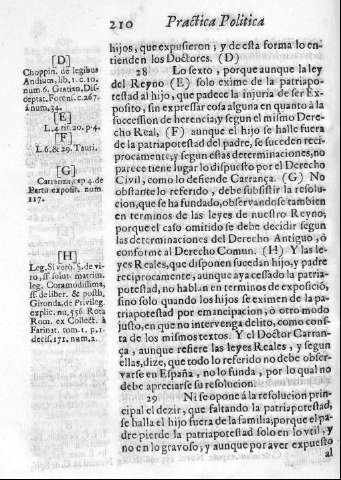 210 Practica Politica
hijos, que expusieron, y de esta forma lo en-
tienden los Doctores. (D)
28 Lo sexto, porque aunque la ley
del Reyno (E) solo exime de la patriapo-
testad al hijo, que padece la injuria de ser Ex-
posito, sin expressar cosa alguna en quanto à la
succession de herencia, y segun el mismo Dere-
cho Real, (F) aunque el hijo se halle fuera
de la patriapotestad del padre, se suceden reci-
procamente, y segun estas determinaciones, no
parece tiene lugar lo dispuesto por el Derecho
Civil, como lo defiende Carrança. (G) No
obstante lo referido, debe subsistir la resolu-
cion, que se ha fundado, observandose tambien
en terminos de las leyes de nuestro Reyno,
porque el caso omitido se debe decidir segun
las determinaciones del Derecho Antiguo, ò
conforme al Derecho Comun. (H) Y las le-
yes Reales, que disponen suceden hijo, y padre
reciprocamente, aunque aya cessado la patria-
potestad, no hablan en terminos de exposició,
sino solo quando los hijos se eximen de la pa-
triapotestad por emancipacion, ò otro modo
justo, en que no intervenga delito, como cons-
ta de los mismos textos. Y el Doctor Carran-
ça, aunque refiere las leyes Reales, y segun
ellas, dize, que todo lo referido no debe obser-
varse en España, no lo funda, por lo qual no
debe apreciarse su resolucion.
29 Ni se opone à la resolucion prin-
cipal el dezir, que faltando la patriapotestad,
se halla el hijo fuera de la familia; porque el pa-
dre pierde la patriapotestad solo en lo vtil, y
no en lo gravoso, y aunque por aver expuesto
al
[D]
Choppin. de legibus
Andium, lib. 1. c. 10.
num. 6. Gratian. Dis-
ceptat. Forens. c. 267.
à num. 34.
[E]
L. 4. tit. 20. p. 4.
[F]
L. 6. & 29. Tauri.
[G]
Carranza, cap. 4. de
Partu exposit. num.
117.
[H]
Leg. Si verò. §. de vi-
ro, ff. solut. matrim.
leg. Commodissima,
ff. de liber. & posth.
Gironda, de Privileg.
explic. nu. 556. Rota
Rom. ex Collect. à
Farinat. tom. 1. p. 1.
decis. 171. num. 2.